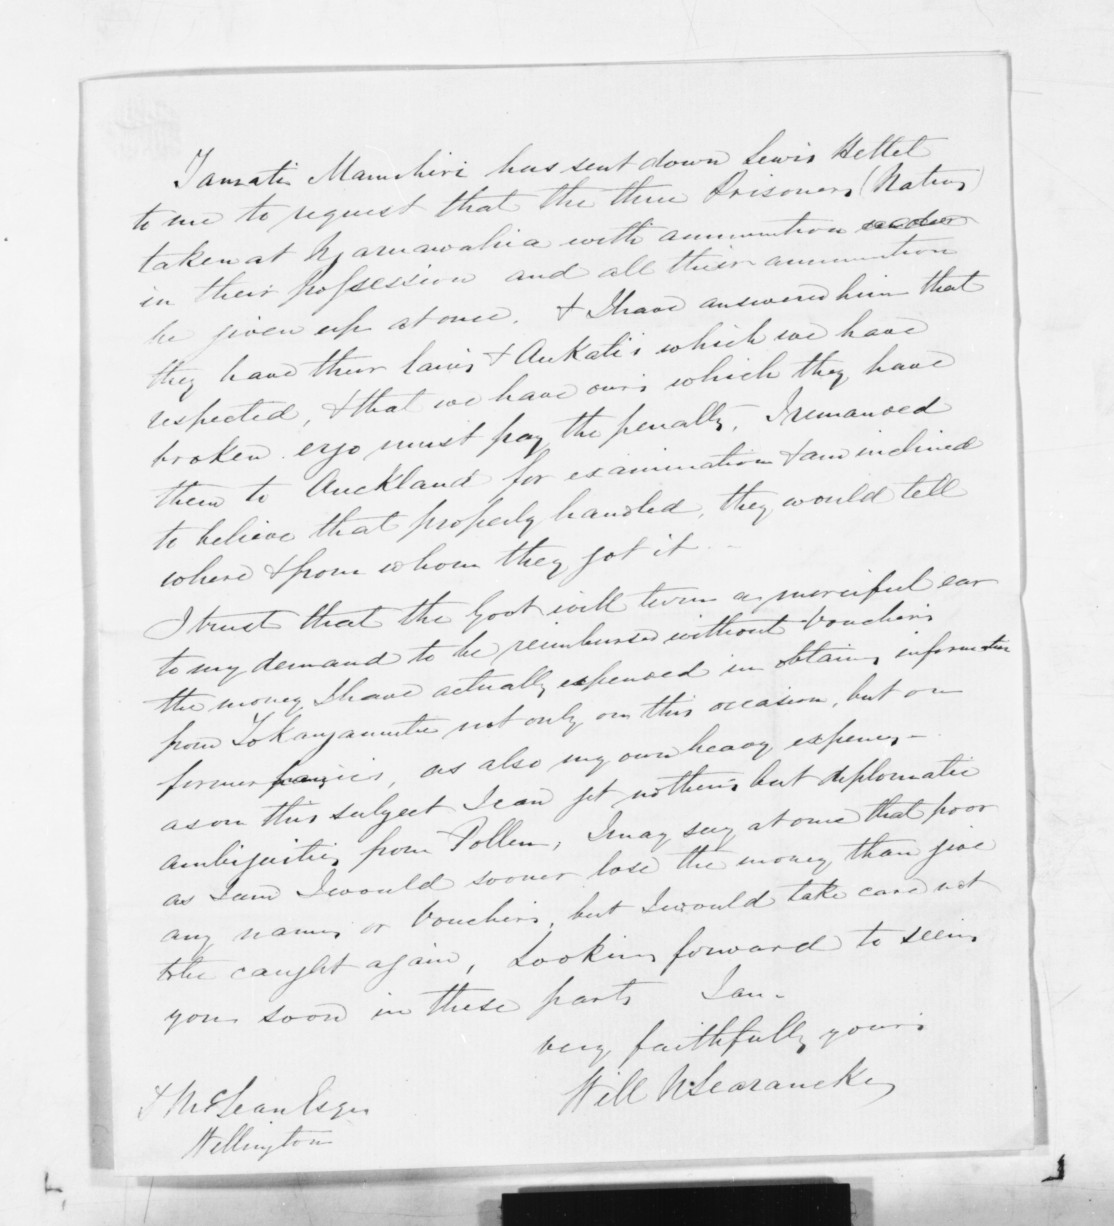 Tamati Manuhiri has sent down Lewis Hettet
to me to request that the three Prisoners (Natives)
taken at Ngaruawahia with ammunition
in their possession and all their ammunition
be given up at once. & I have answered him that
they have their laws & Aukatis which we have
respected, & that we have ours which they have
broken ergo must pay the penalty, I remanded
them to Auckland for examination & am inclined
to believe that properly handled, they would tell
where & from whom they got it -
I trust that the Govt will turn a merciful ear
to my demand to be reimbursed without Vouchers
the money I have actually expended in obtaining information
from Tokangamutu not only on this occasion, but on
former, as also my own heavy expenses -
as on this subject I can get nothing but diplomatic
ambiguities from Pollen, I may say at once that poor
as I am I would sooner lose the money than give
any names or Vouchers, but I would take care not
to be caught again, Looking forward to seeing
you soon in these parts I am -
very faithfully yours
Will N. Searancke
McLean Esqre
Wellington